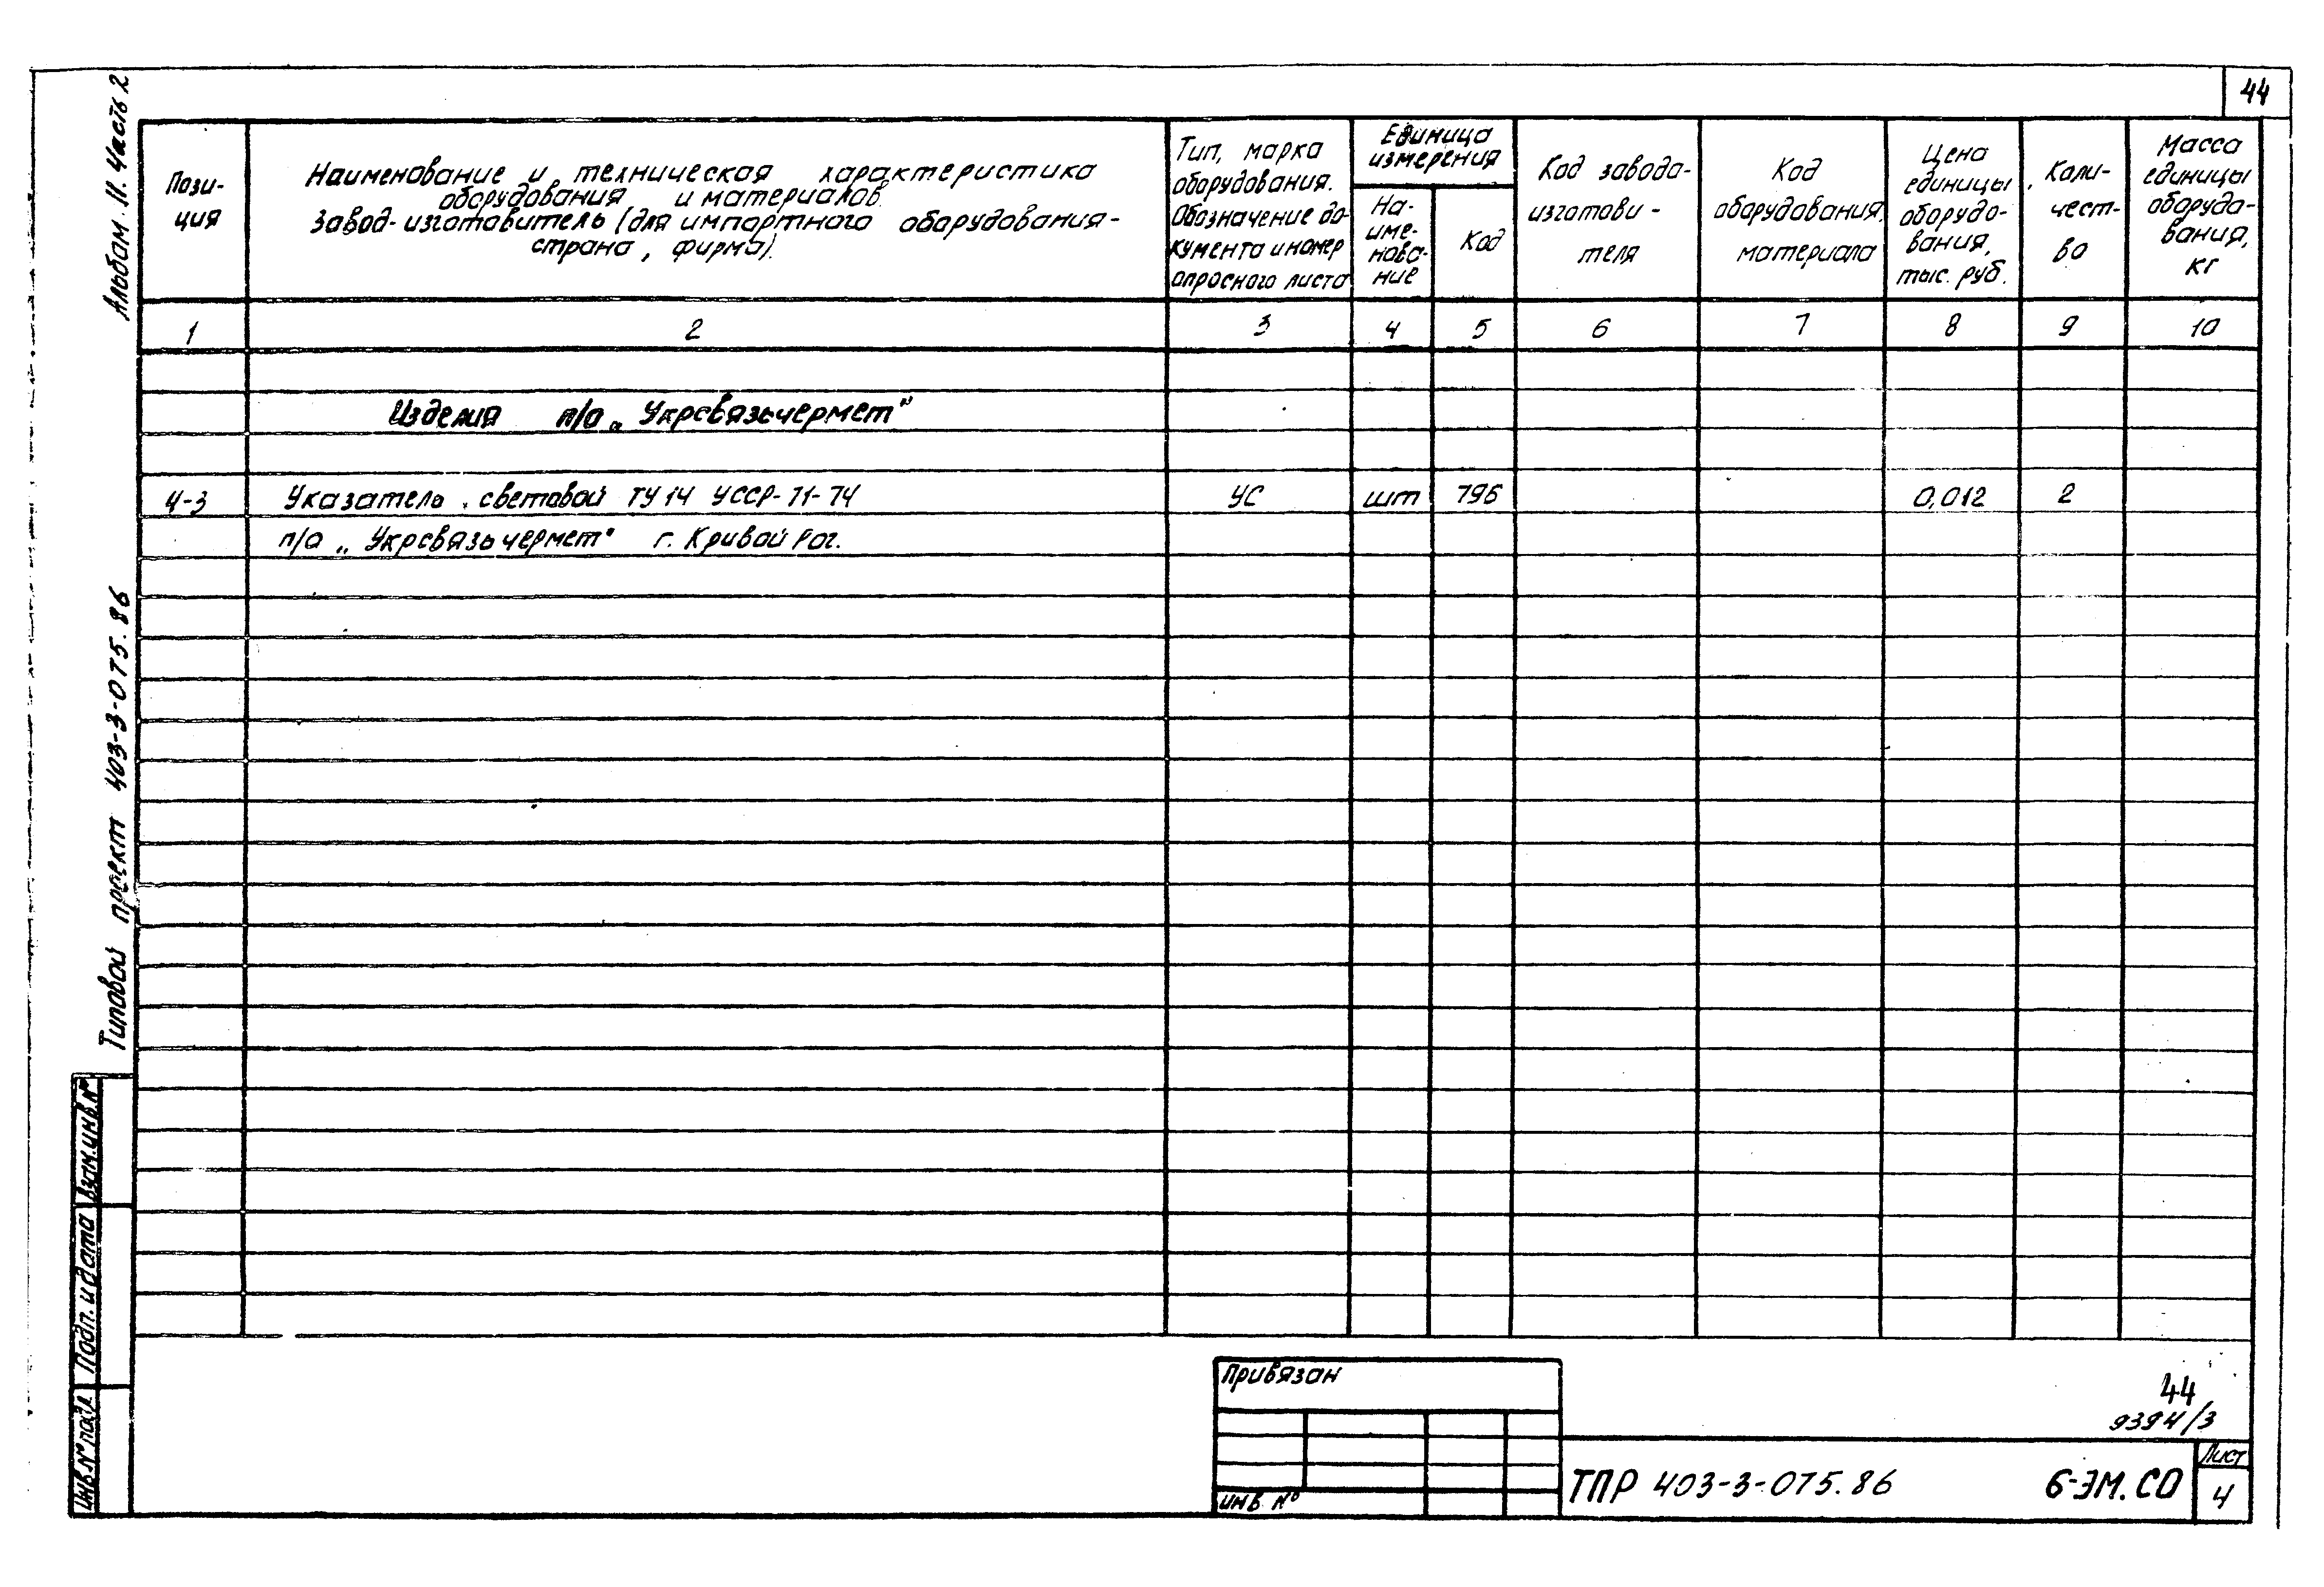 44
Альбом II. Часть 2
Типовой проект 403-3-075.86
Пози-
ция
Наименование и техническая характеристика
оборудования и материалов.
Завод-изготовитель (для импортного оборудования-
страна, фирма).
Тип, марка
оборудования.
Обозначение до-
кумента и номер
опросного листа
Единица
измерения
На-
име-
нова-
ние
Код
Код завода-
изготови-
теля
Код
оборудования,
материала
Цена
единицы
оборудо-
вания,
тыс. руб.
Коли-
чест-
во
Масса
единицы
оборудо-
вания,
кг
1 2 3 4 5 6 7 8 9 10
Изделия п/о „Укрсвязьчермет"
4-3 Указатель световой ТУ 14 УССР-71-74 УС шт 796 0,012 2
п/о „Укрсвязьчермет" г. Кривой Рог.
Взам. инв. №
Подп. и дата
Инв. № подл.
Привязан
Инв. №
44
9394/3
ТПР 403-3-075.86 6-ЭМ.СО
Лист
4